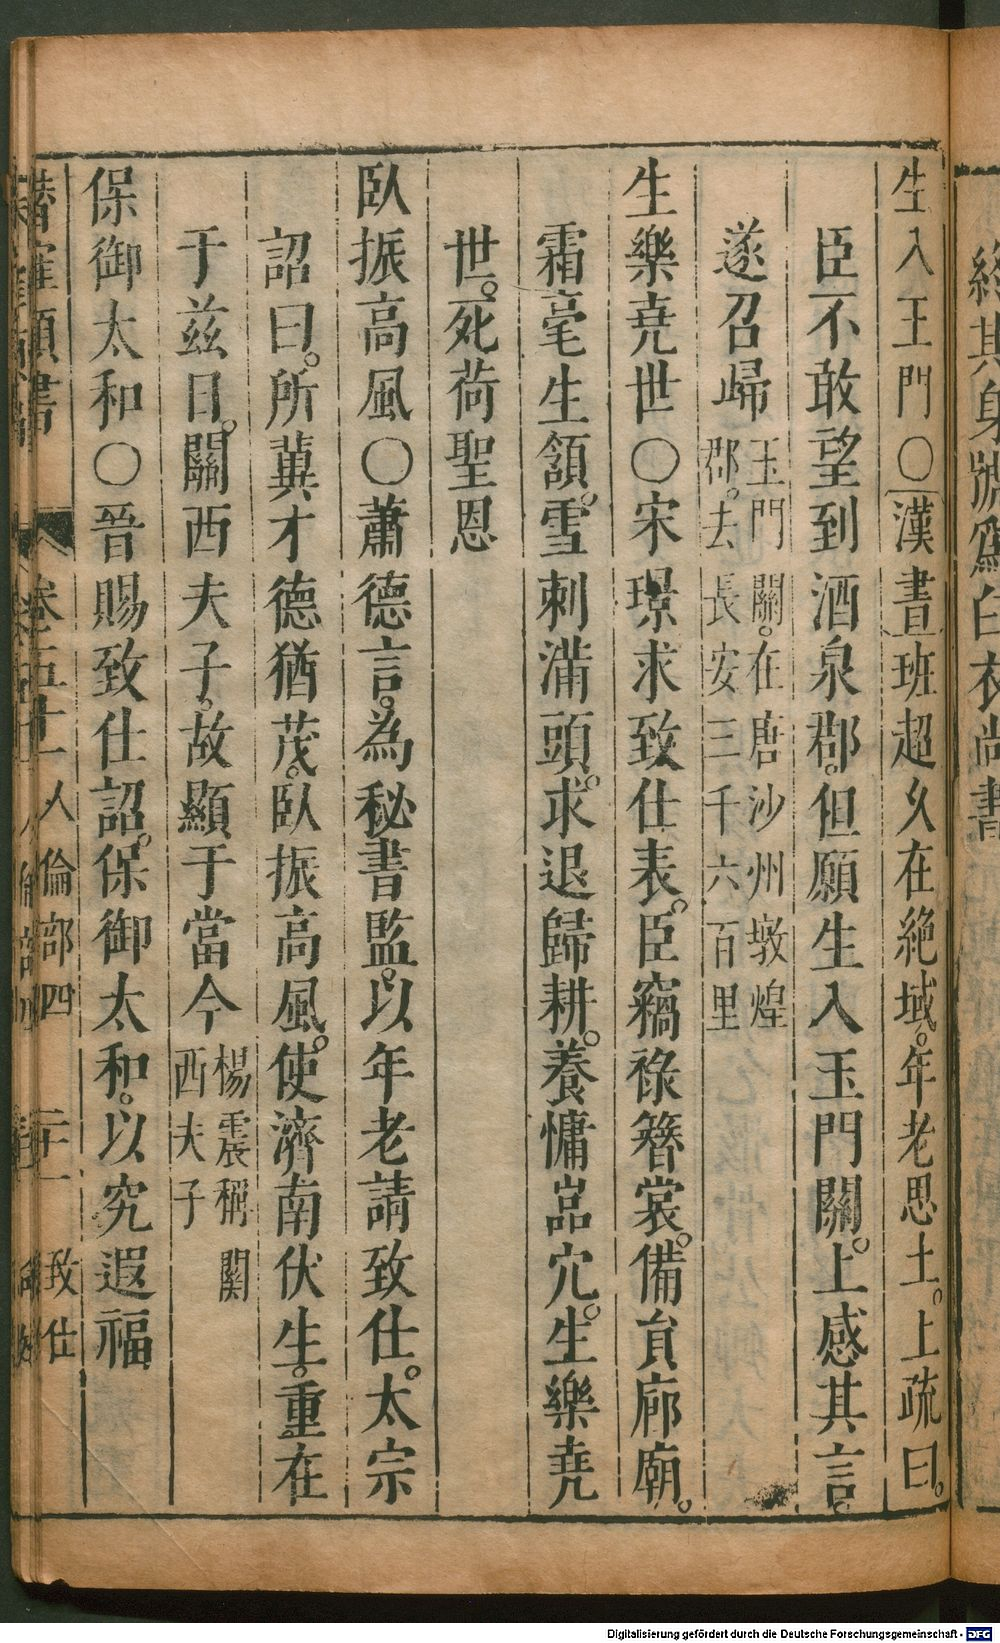 終其身號爲白衣尚書
生入王門○漢書班超久在絶域。年老思土。上疏曰。
臣不敢望到酒泉郡。但願生入玉門關。上感其言。
遂召歸玉門關。在唐沙州墩煌
郡。去長安三千六百里
生樂堯世○宋璟求致仕表。臣竊祿簪裳。備員廊廟。
霜毫生頷。雪刺滿頭。求退歸耕。養慵嵓穴。生樂堯
世。死荷聖恩
臥振高風○蕭德言。為秘書監。以年老請致仕。太宗
詔曰。所冀才德猶茂。臥振高風。使濟南伏生。重在
于兹日。關西夫子。故顯于當今楊震稱關
西夫子
保御太和○晉賜致仕詔。保御太和。以究遐福
卷五十一 人倫部四 二十一 致仕
Digitalisierung gefördert durch die Deutsche Forschungsgemeinschaft - DFG